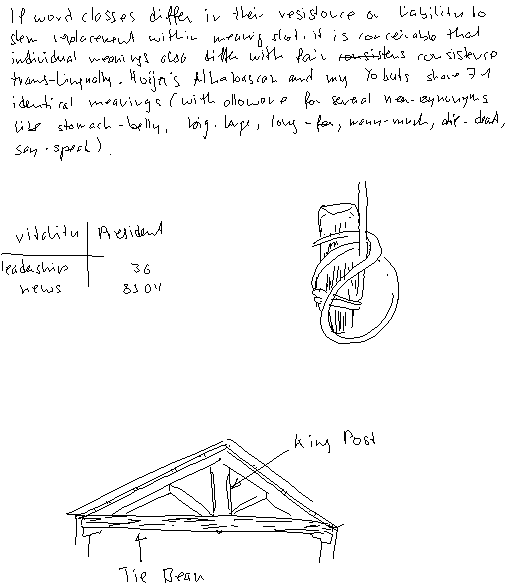 If word classes differ in their resistance or liability to
stem replacement within meaning slot, it is conceivable that
individual meanings also differ with fair consistence
trans-lingually. Hoijer's Athabascan and my Yokuts share 71
identical meanings (with allowance for several near-synonyms
like stomach-belly, big-large, long-far, many-much, die-dead,
say-speak).
vitality President
leadership 36
news 8304
King Post
Tie Beam